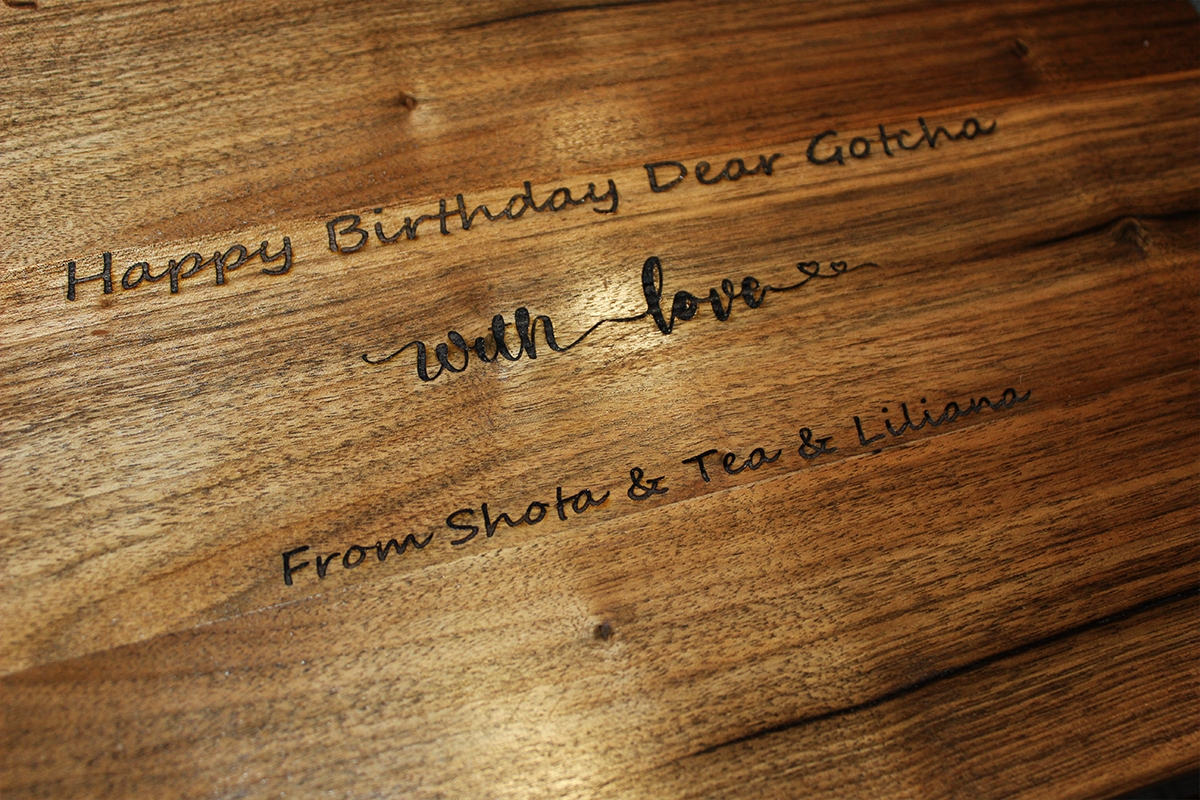 Happy Birthday Dear Gotcha
with love
From Shota & Tea & Liliana